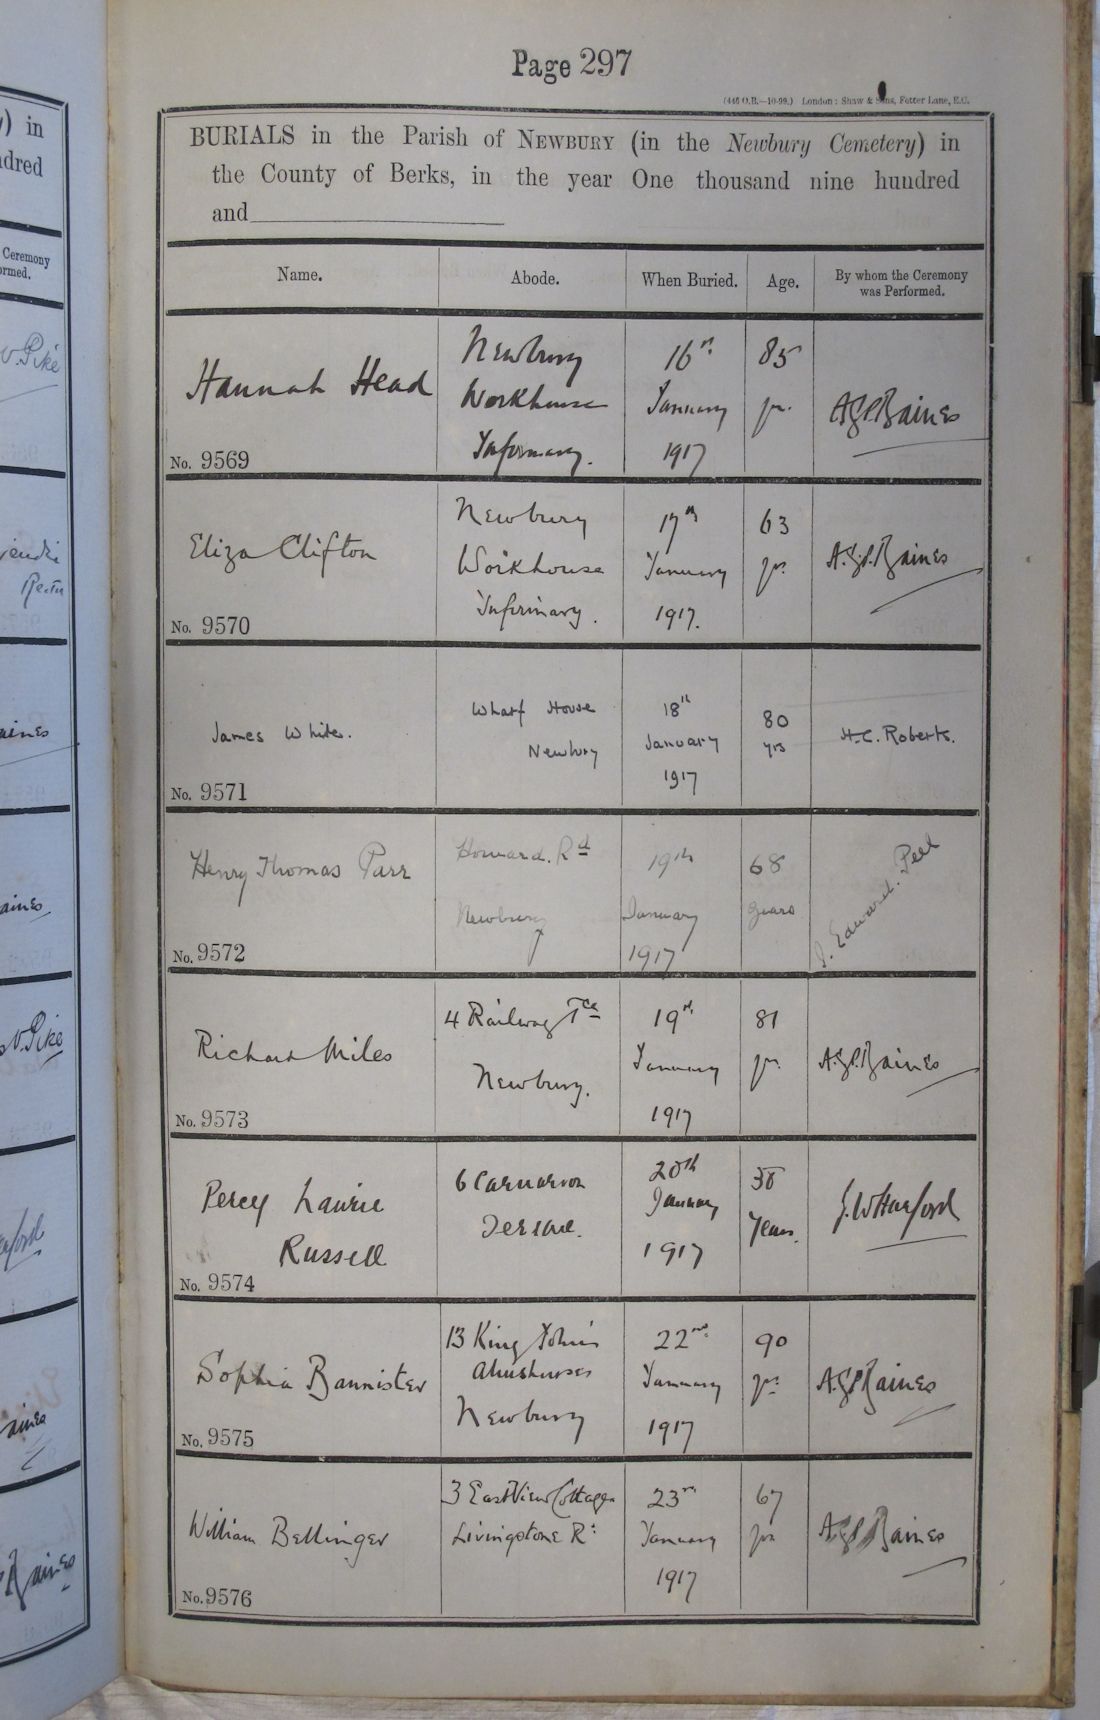 Page 297
(446 O.B.—10-99.) London: Shaw & Sons, Fetter Lane, E.C.
BURIALS in the Parish of NEWBURY (in the Newbury Cemetery) in
the County of Berks, in the year One thousand nine hundred
and
Name. Abode. When Buried. Age. By whom the Ceremony
was Performed.
Hannah Head
Newbury
Workhouse
Infirmary.
16th
January
1917
85
yrs.
A.G.P. Baines
No. 9569
Eliza Clifton
Newbury
Workhouse
Infirmary.
17th
January
1917.
63
yrs.
A.G.P. Baines
No. 9570
James White.
Wharf House
Newbury
18th
January
1917
80
yrs
H.C. Roberts.
No. 9571
Henry Thomas Parr
Howard. Rd
Newbury
19th
January
1917
68
years
J. Edward. Peel
No. 9572
Richard Miles
4 Railway Tce
Newbury.
19th
January
1917
81
yrs.
A.G.P. Baines
No. 9573
Percy Laurie
Russell
6 Carnarvon
Terrace.
20th
January
1917
Years.
J.W. Harford
No. 9574
Sophia Bannister
13 King John's
Almshouses
Newbury
22nd
January
1917
90
yrs.
A.G.P. Baines
No. 9575
William Bellinger
3 East View Cottages
Livingstone Rd
23rd
January
1917
67
yrs
A.G.P. Baines
No. 9576